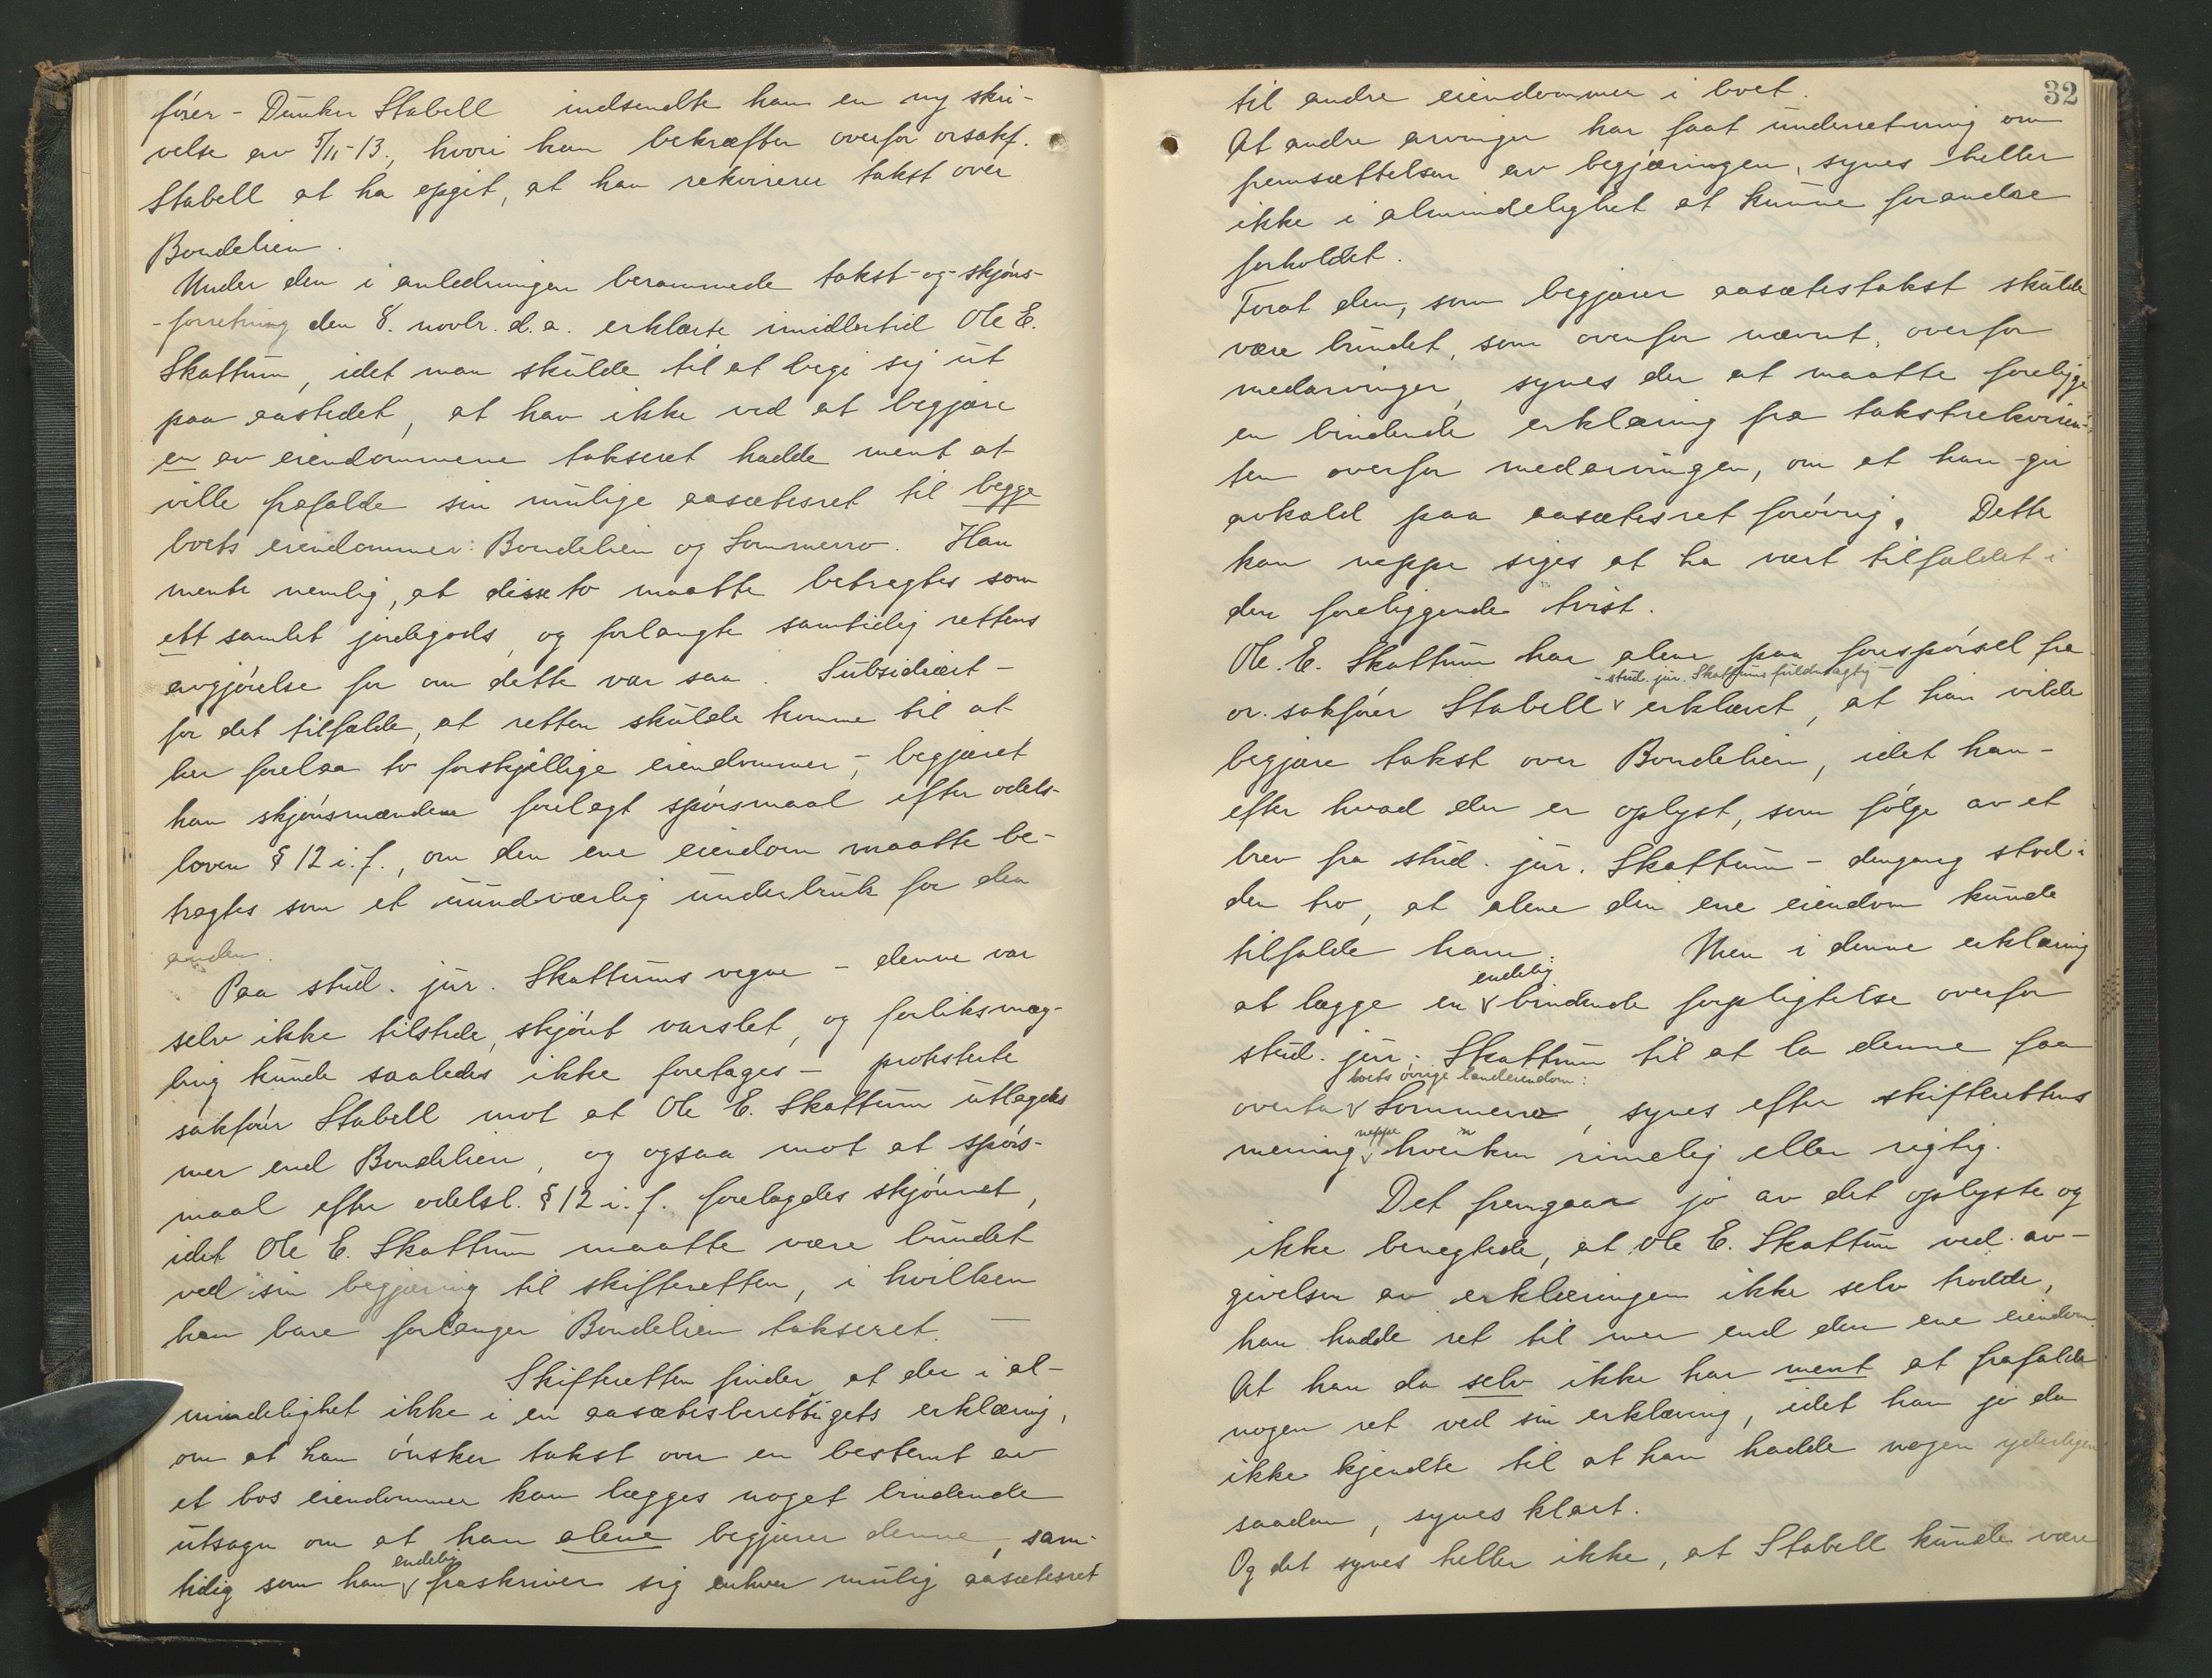 fører - Dunker Stabell indsendte han en ny skri-
velse av 5/11-13., hvori han bekræfter overfor orsakf.
Stabell at ha opgit, at han rekvirerer takst over
Bondelien.
Under den i anledningen berammede takst- og skjøns-
-forretning den 8. novbr. d.a. erklærte imidlertid Ole E.
Skattum, idet man skulde til at begi sig ut
paa aastedet, at han ikke ved at begjære
en av eiendommene takseret hadde ment at
ville frafalde sin mulige aasætesret til begge
boets eiendommer: Bondelien og Sommerro. Han
mente nemlig, at disse to maatte betragtes som
ett samlet jordegods, og forlangte samtidig rettens
avgjørelse for om dette var saa. Subsidiært -
for det tilfælde, at retten skulde komme til at
her forelaa to forskjellige eiendommer -, begjæret
han skjønsmændene forelagt spørsmaal efter odels-
loven § 12 i.f., om den ene eiendom maatte be-
tragtes som et uundværlig underbruk for den
anden.
Paa stud. jur. Skattums vegne - denne var
selv ikke tilstede, skjønt varslet, og forliksmæg-
ling kunde saaledes ikke foretages - protesterte
sakfører Stabell mot at Ole E. Skattum utlagdes
mer end Bondelien, og ogsaa mot at spørs-
maal efter odelsl. § 12 i.f. forelagdes skjønnet,
idet Ole E. Skattum maatte være bundet
ved sin begjæring til skifteretten, i hvilken
han bare forlanger Bondelien takseret. —
Skifteretten finder, at der i al-
mindelighet ikke i en aasætesberettigets erklæring,
om at han ønsker takst over en bestemt av
et bos eiendommer kan lægges noget bindende
utsagn om at han alene begjærer denne, sam-
tidig som han endelig fraskriver sig enhver mulig aasætesret
32
til andre eiendommer i boet.
At andre arvinger har faat underretning om
fremsættelsen av begjæringen, synes heller
ikke i almindelighet at kunne forandre
forholdet.
Forat den, som begjærer aasætestakst skulde
være bundet, som ovenfor nævnt, overfor
medarvinger, synes der at maatte foreligge
en bindende erklæring fra takstrekviren-
ten overfor medarvingen, om at han gir
avkald paa aasætesret forøvrig. Dette
kan neppe siges at ha vært tilfældet i
den foreliggende tvist.
Ole. E. Skattum har alene paa forespørsel fra
- stud. jur. Skattums fuldmægtig -
or. sakfører Stabell erklæret, at han vilde
begjære takst over Bondelien, idet han -
efter hvad der er oplyst, som følge av et
brev fra stud. jur. Skattum - dengang stod i
den tro, at alene den ene eiendom kunde
tilfalde ham. Men i denne erklæring
at lægge en endelig bindende forpligtelse overfor
stud. jur. Skattum til at la denne faa
boets øvrige landeiendom:
overta Sommerro, synes efter skifterettens
mening neppe hverken rimelig eller rigtig.
Det fremgaar jo av det oplyste og
ikke benegtede, at Ole E. Skattum ved av-
givelsen av erklæringen ikke selv trodde,
han hadde ret til mer end den ene eiendom.
At han da selv ikke har ment at frafalde
nogen ret ved sin erklæring, idet han jo da
ikke kjendte til at han hadde nogen yderligere
saadan, synes klart.
Og det synes heller ikke, at Stabell kunde være